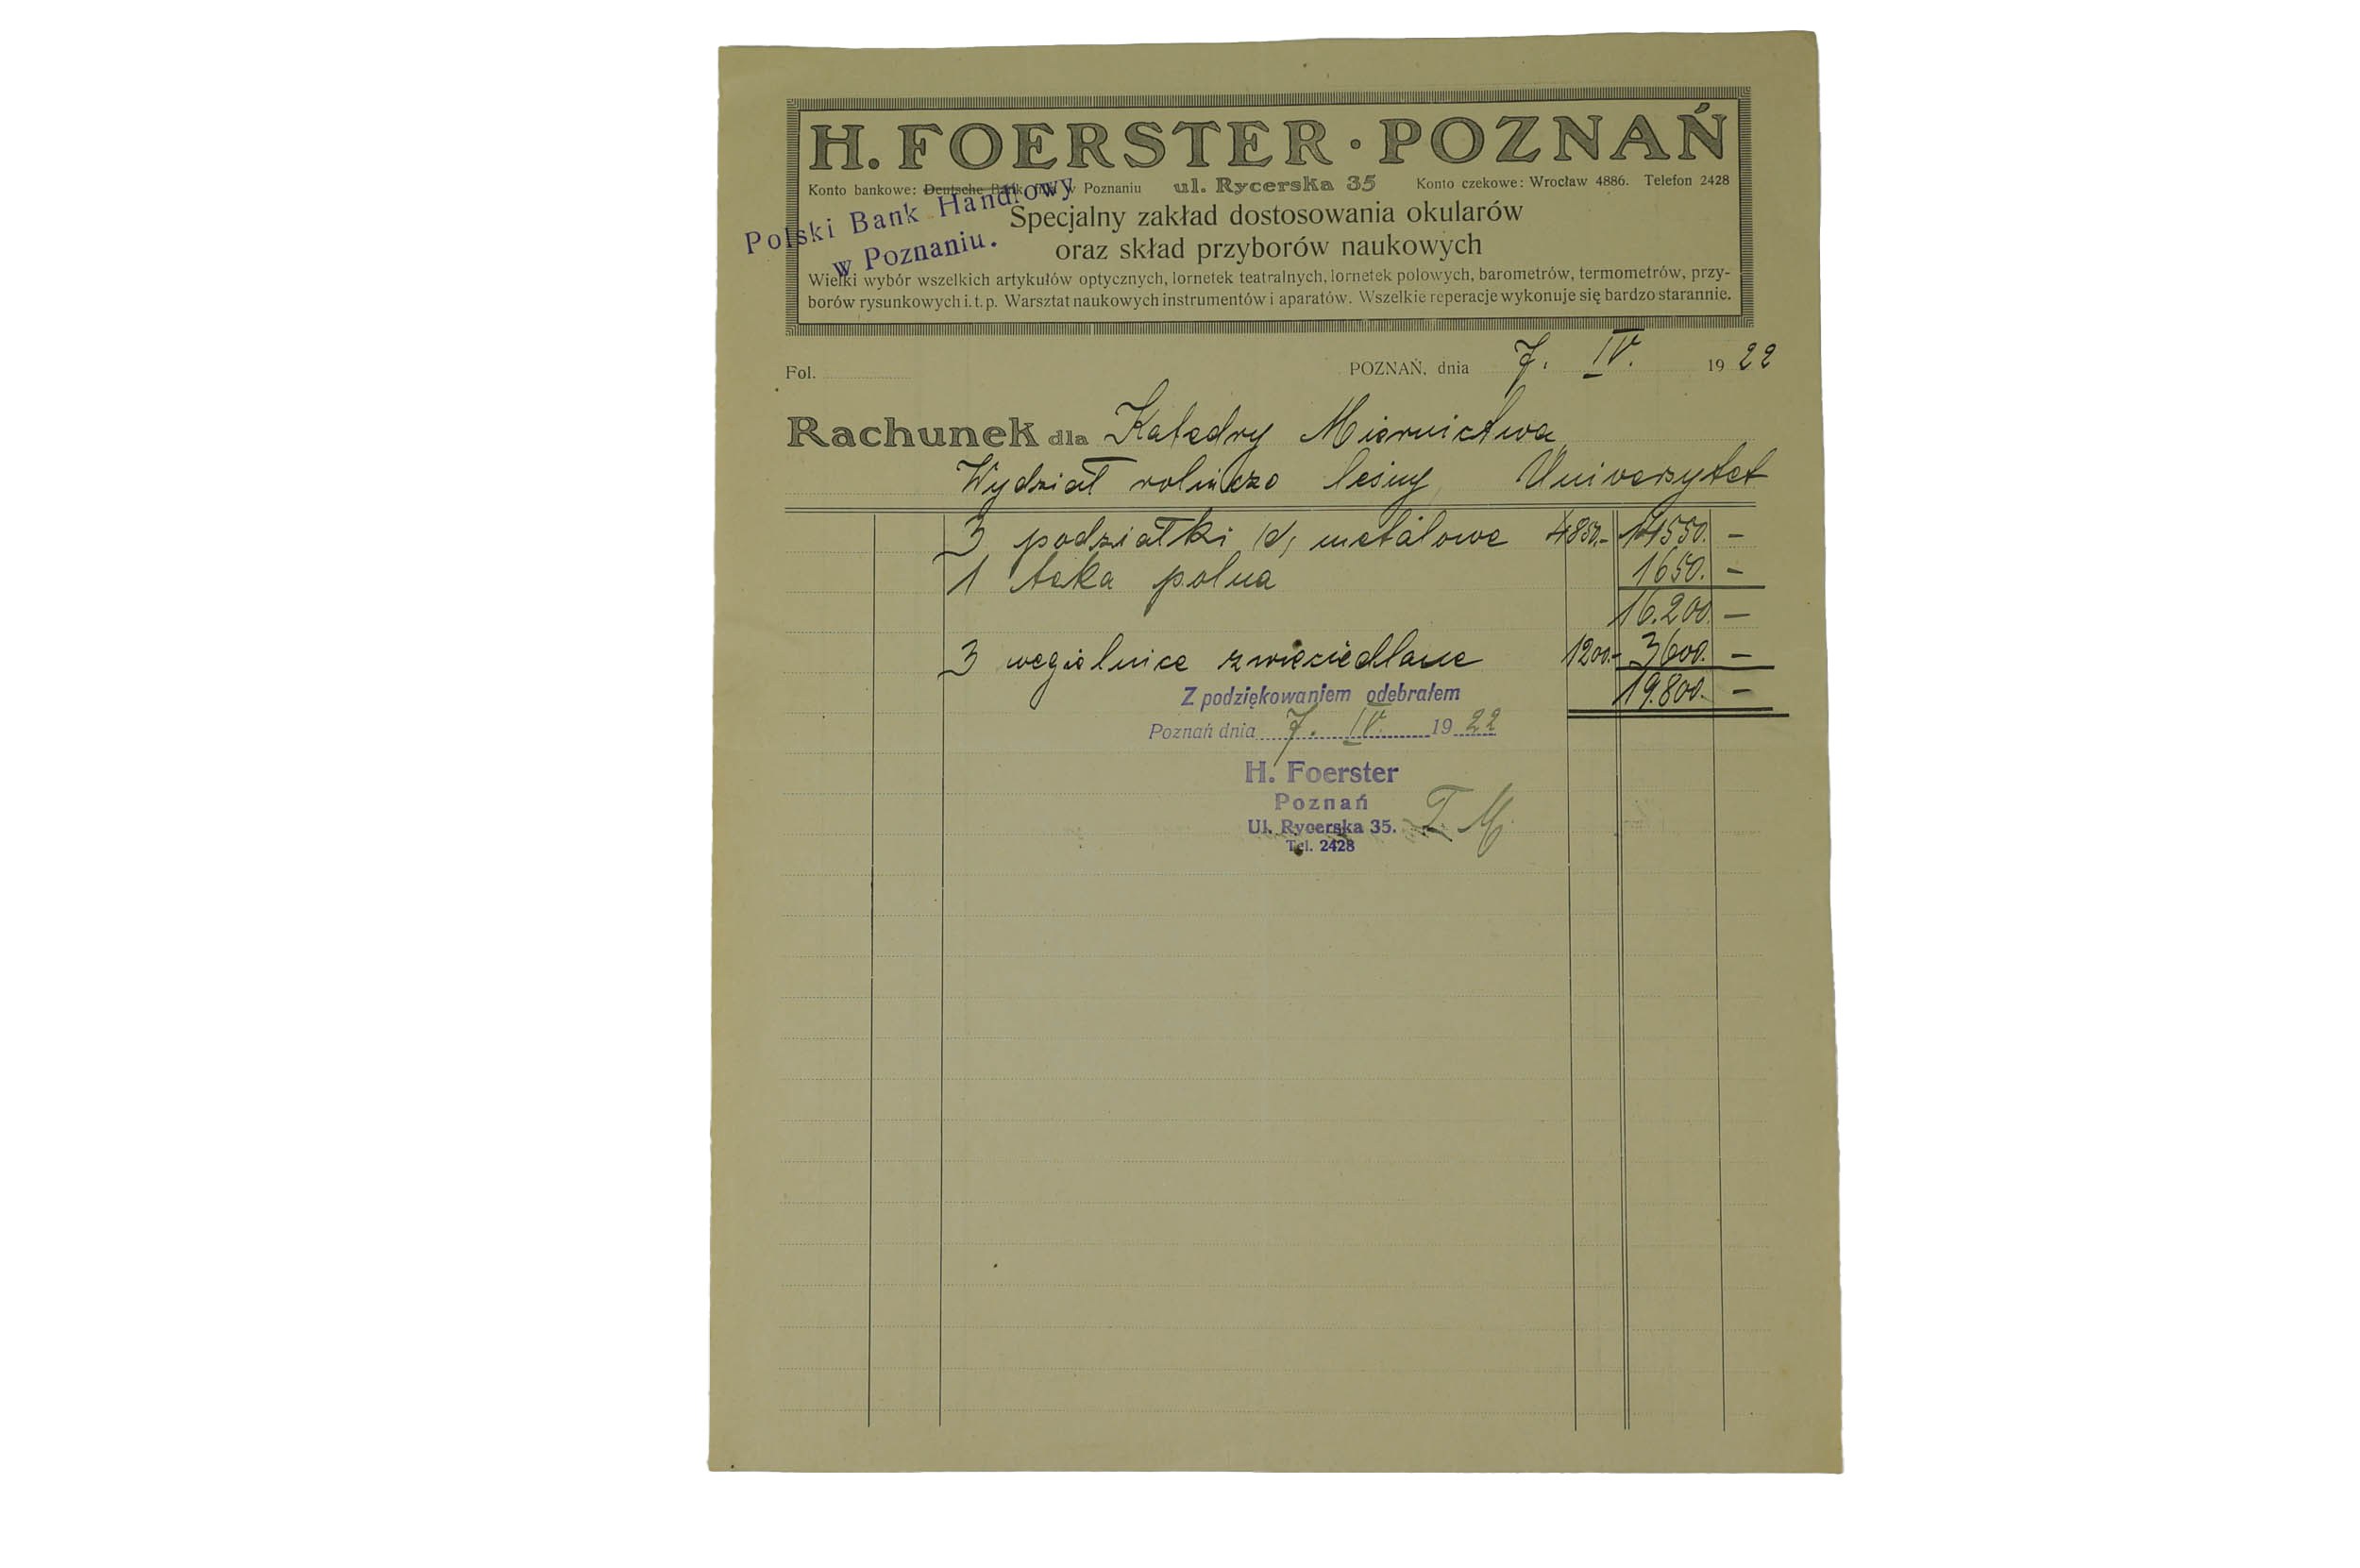 H. FOERSTER · POZNAŃ
Konto bankowe: Deutsche Bank w Poznaniu ul. Rycerska 35 Konto czekowe: Wrocław 4886. Telefon 2428
Polski Bank Handlowy
w Poznaniu.
Specjalny zakład dostosowania okularów
oraz skład przyborów naukowych
Wielki wybór wszelkich artykułów optycznych, lornetek teatralnych, lornetek polowych, barometrów, termometrów, przy-
borów rysunkowych i. t. p. Warsztat naukowych instrumentów i aparatów. Wszelkie reperacje wykonuje się bardzo starannie.
Fol. POZNAŃ, dnia 7. IV. 1922
Rachunek dla Katedry Miernictwa
Wydział rolniczo leśny, Uniwersytet
3 podziałki metalowe 4850.- 14550. -
1 teka polna 1650. -
16.200 -
3 węgielnice zwierciedlane 1200.- 3600. -
19.800. -
Z podziękowaniem odebrałem
Poznań dnia 7. IV. 1922
H. Foerster
Poznań
Ul. Rycerska 35. T. M.
Tel. 2428